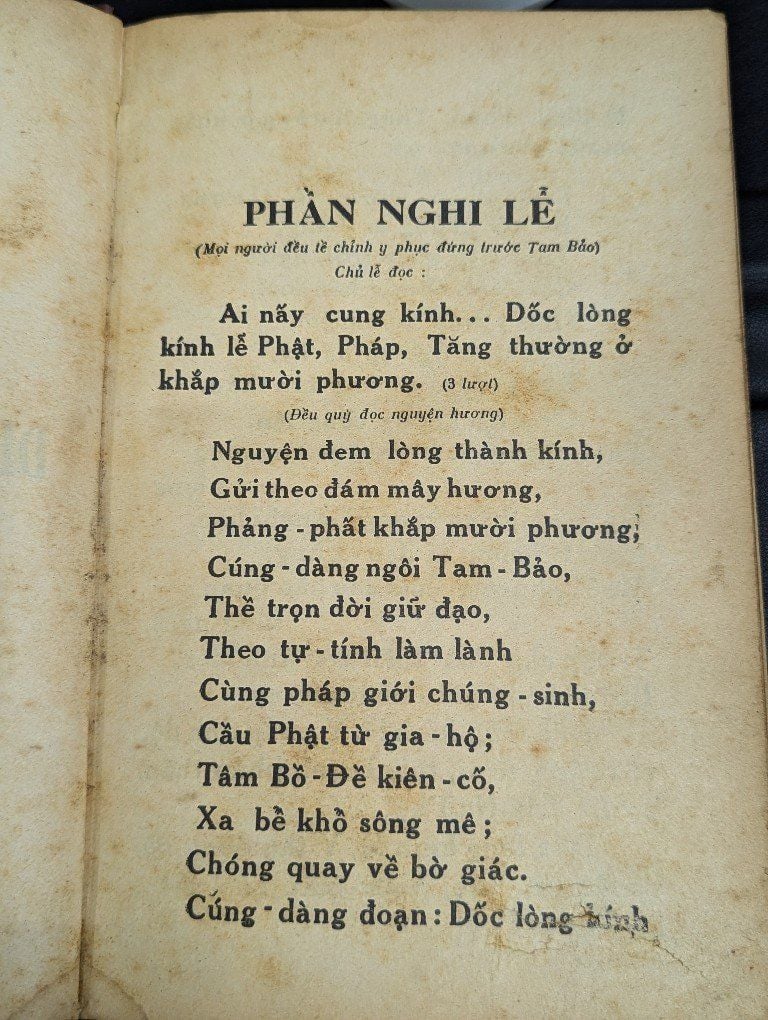 PHẦN NGHI LỄ
(Mọi người đều tề chỉnh y phục đứng trước Tam Bảo)
Chủ lễ đọc :
Ai nấy cung kính... Dốc lòng
kính lễ Phật, Pháp, Tăng thường ở
khắp mười phương. (3 lượt)
(Đều quỳ đọc nguyện hương)
Nguyện đem lòng thành kính,
Gửi theo đám mây hương,
Phảng - phất khắp mười phương,
Cúng - dàng ngôi Tam - Bảo,
Thề trọn đời giữ đạo,
Theo tự - tính làm lành
Cùng pháp giới chúng - sinh,
Cầu Phật từ gia - hộ ;
Tâm Bồ - Đề kiên - cố,
Xa bể khổ sông mê ;
Chóng quay về bờ giác.
Cúng - dàng đoạn : Dốc lòng kính